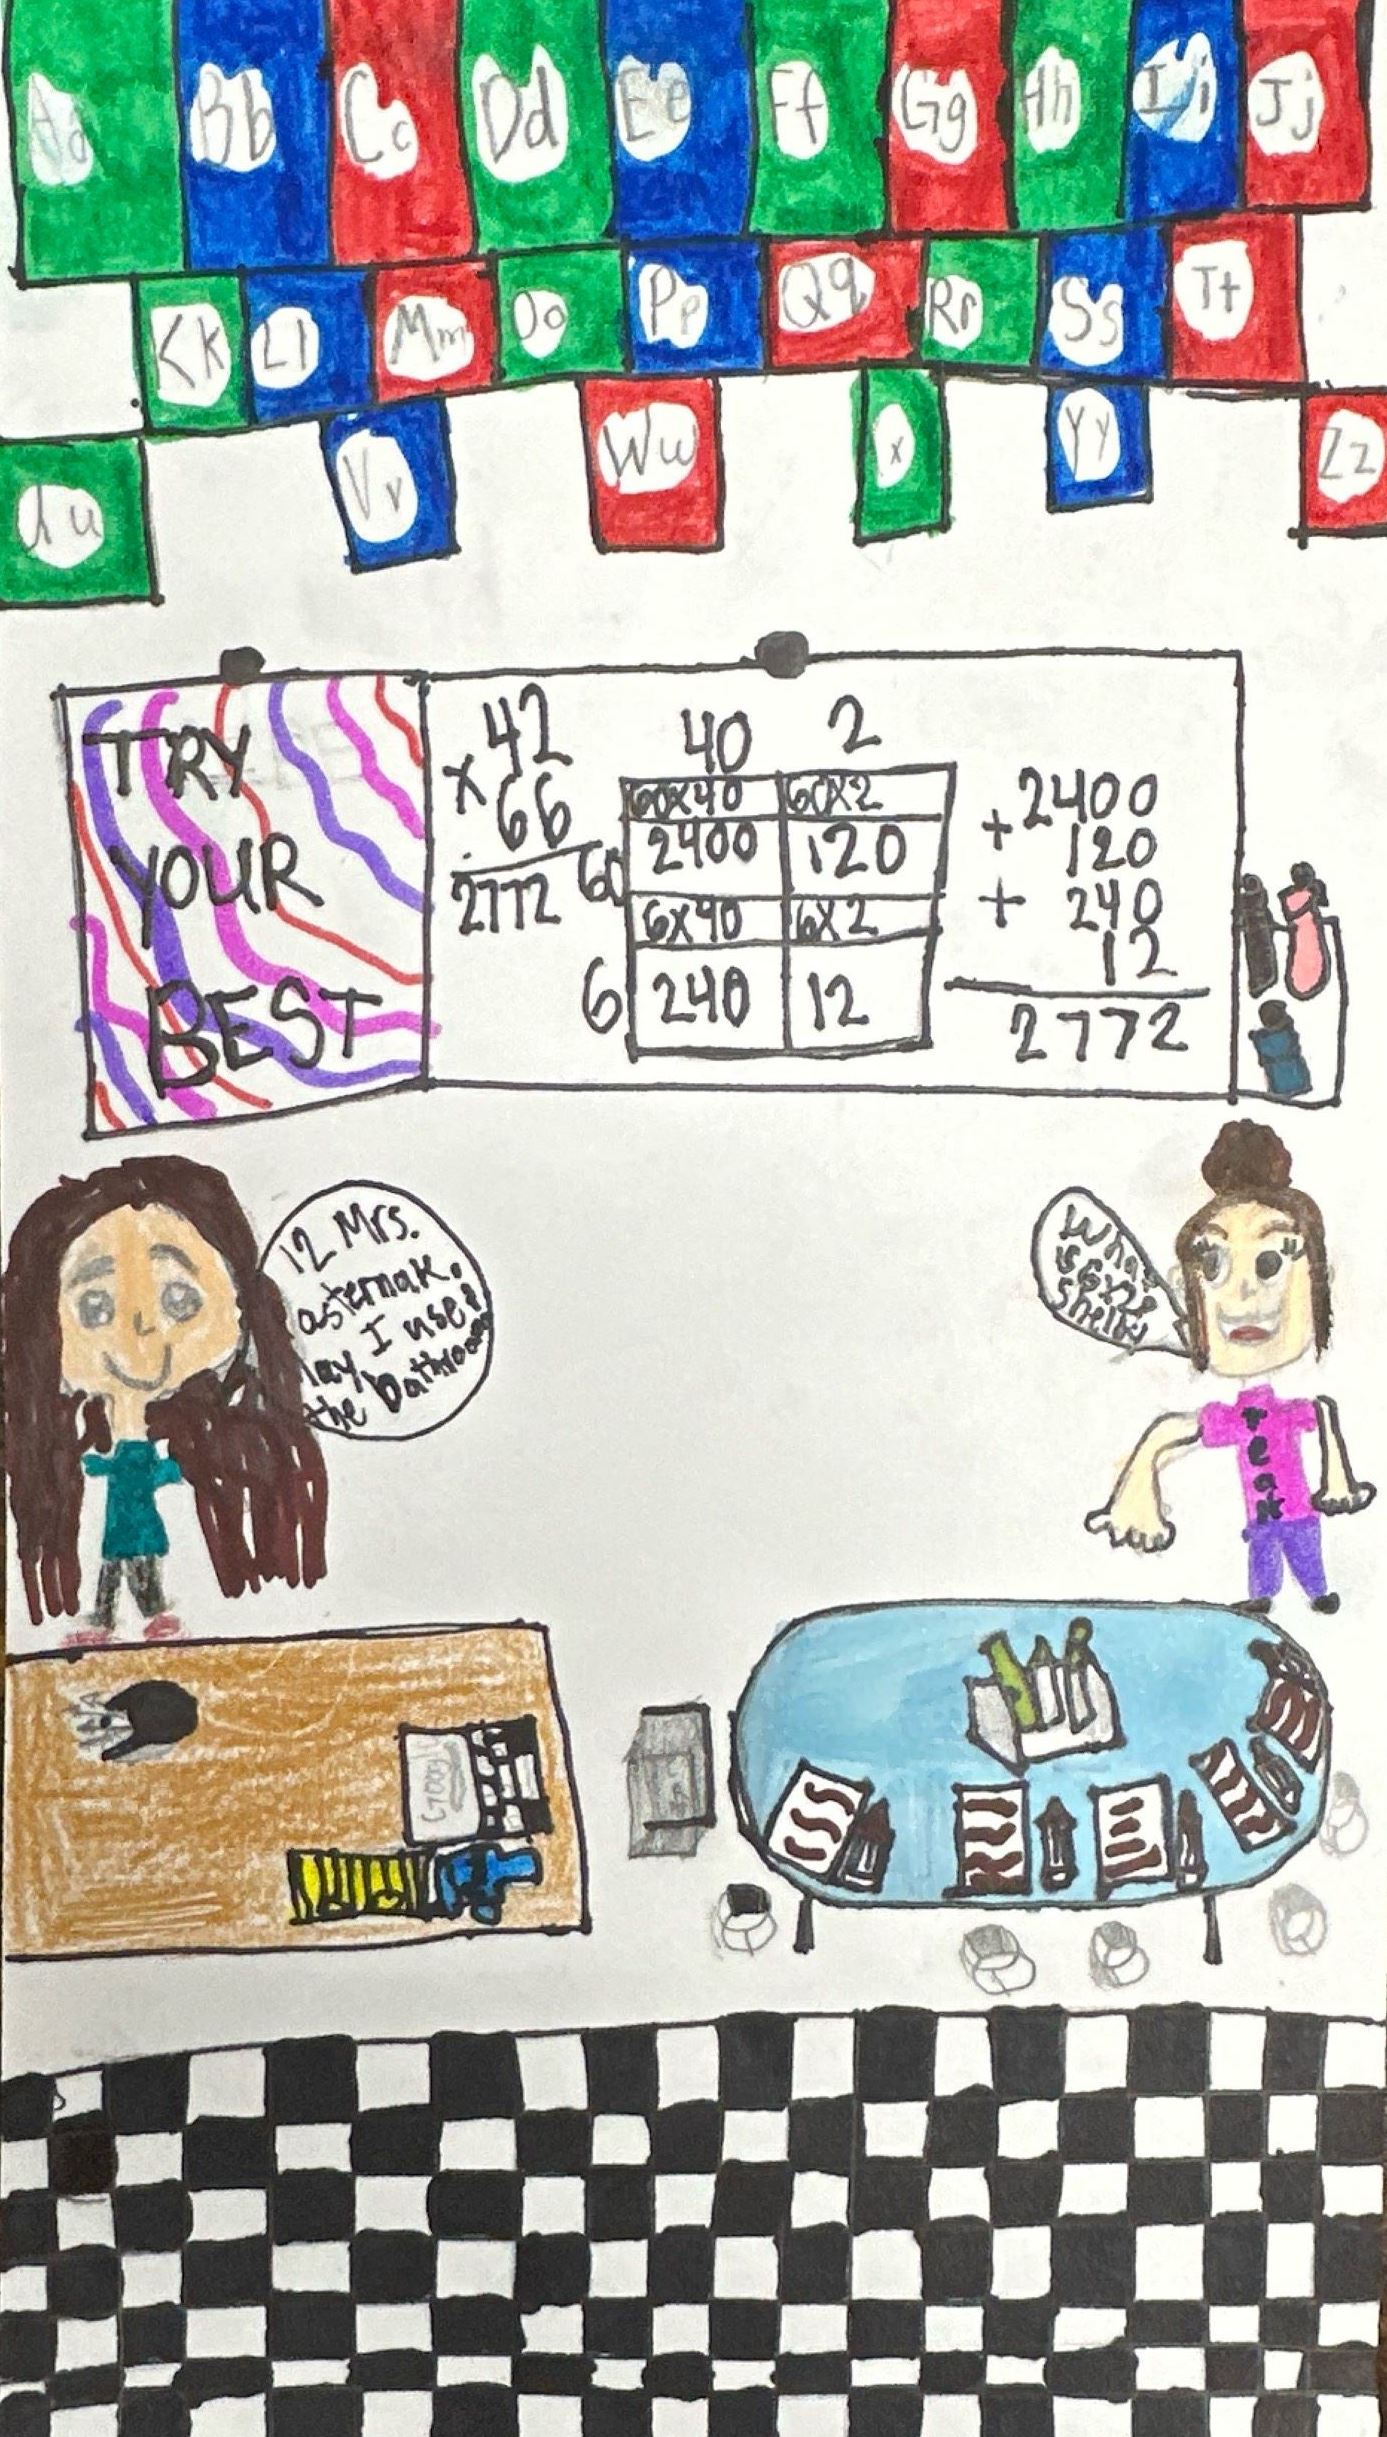 Aa Bb Cc Dd Ee Ff Gg Hh Ii Jj
Kk Ll Mm Oo Pp Qq Rr Ss Tt
u Vv Ww x Yy Zz
TRY
YOUR
BEST
42
x 66
2772
40 2
60x40 60x2
60 2400 120
6x40 6x2
6 240 12
+2400
120
+ 240
12
2772
12 Mrs.
asternak.
ay I use
the bathroom
What
is 6x2
Shelby
Teak